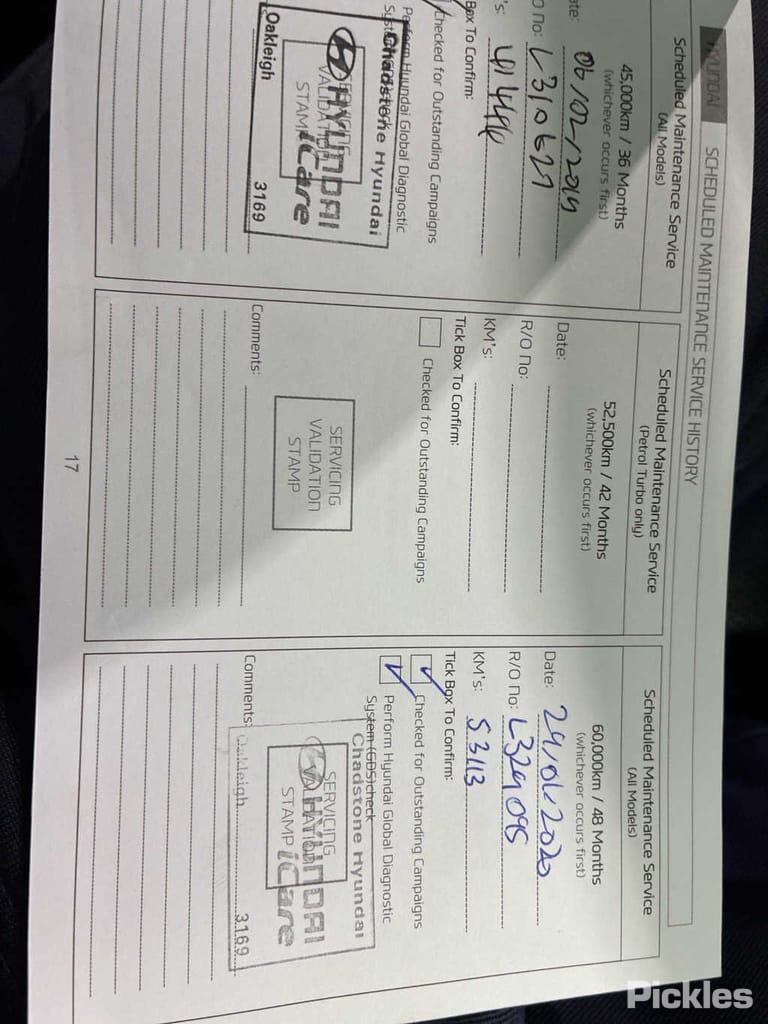 HYUNDAI
SCHEDULED MAINTENANCE SERVICE HISTORY
Scheduled Maintenance Service
(All Models)
45,000km / 36 Months
(whichever occurs first)
ate:
O No: L310627
's:
Box To Confirm:
Checked for Outstanding Campaigns
Perform Hyundai Global Diagnostic
Chadstone Hyundai
HYUNDAI
iCare
SERVICING
VALIDATION
STAMP
Oakleigh 3169
Scheduled Maintenance Service
(Petrol Turbo only)
52,500km / 42 Months
(whichever occurs first)
Date:
R/O No:
KM's:
Tick Box To Confirm:
Checked for Outstanding Campaigns
SERVICING
VALIDATION
STAMP
Comments:
Scheduled Maintenance Service
(All Models)
60,000km / 48 Months
(whichever occurs first)
Date: 29/01/2020
R/O No: L329095
KM's: 53113
Tick Box To Confirm:
Checked for Outstanding Campaigns
Perform Hyundai Global Diagnostic
System (GDS) check
Chadstone Hyundai
HYUNDAI
iCare
SERVICING
VALIDATION
STAMP
Comments: Oakleigh 3169
17
Pickles